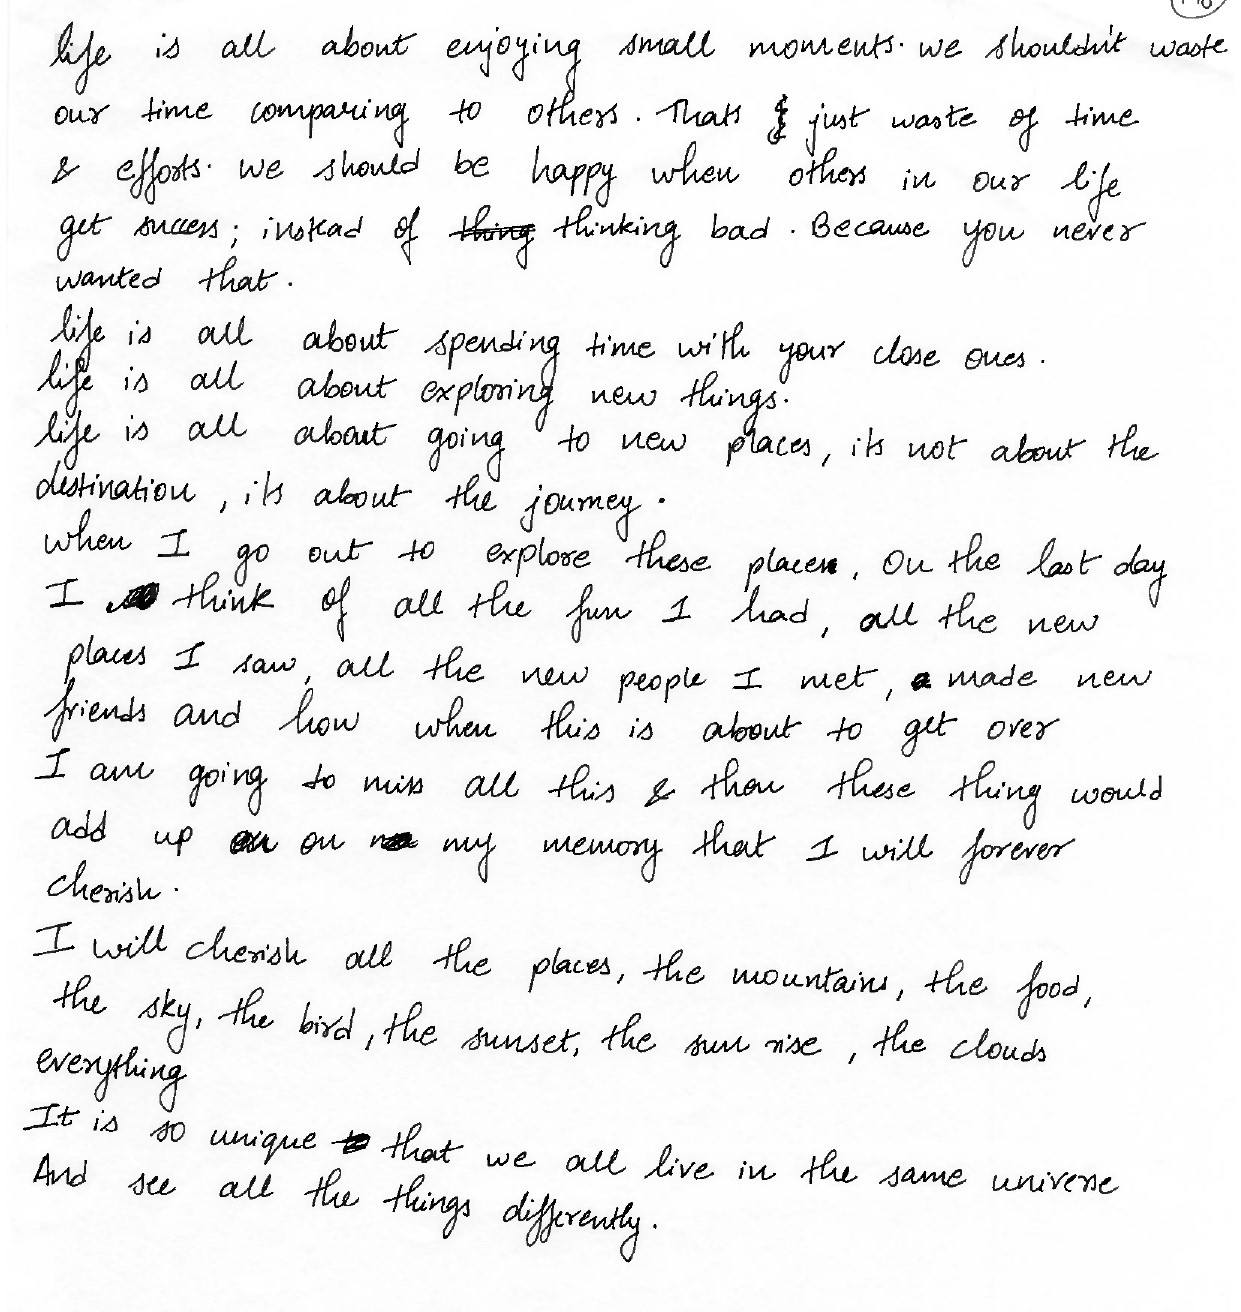 life is all about enjoying small moments. we shouldn't waste
our time comparing to others. Thats just waste of time
& efforts. we should be happy when others in our life
get success; instead of thing thinking bad. Because you never
wanted that.
life is all about spending time with your close ones.
life is all about exploring new things.
life is all about going to new places, its not about the
destination, its about the journey.
when I go out to explore these places, On the last day
I think of all the fun I had, all the new
places I saw, all the new people I met, made new
friends and how when this is about to get over
I am going to miss all this & then these thing would
add up on my memory that I will forever
cherish.
I will cherish all the places, the mountains, the food,
the sky, the bird, the sunset, the sun rise, the clouds
everything
It is so unique that we all live in the same universe
And see all the things differently.